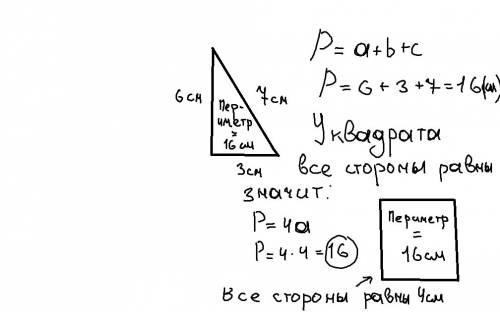 P = a+b+c
6см
7см
Пер-
иметр
=
16см
3см
P = 6 + 3 + 7 = 16(см)
У квадрата
все стороны равны
значит:
P = 4a
P = 4 · 4 = 16
Периметр
=
16см
все стороны равны 4см